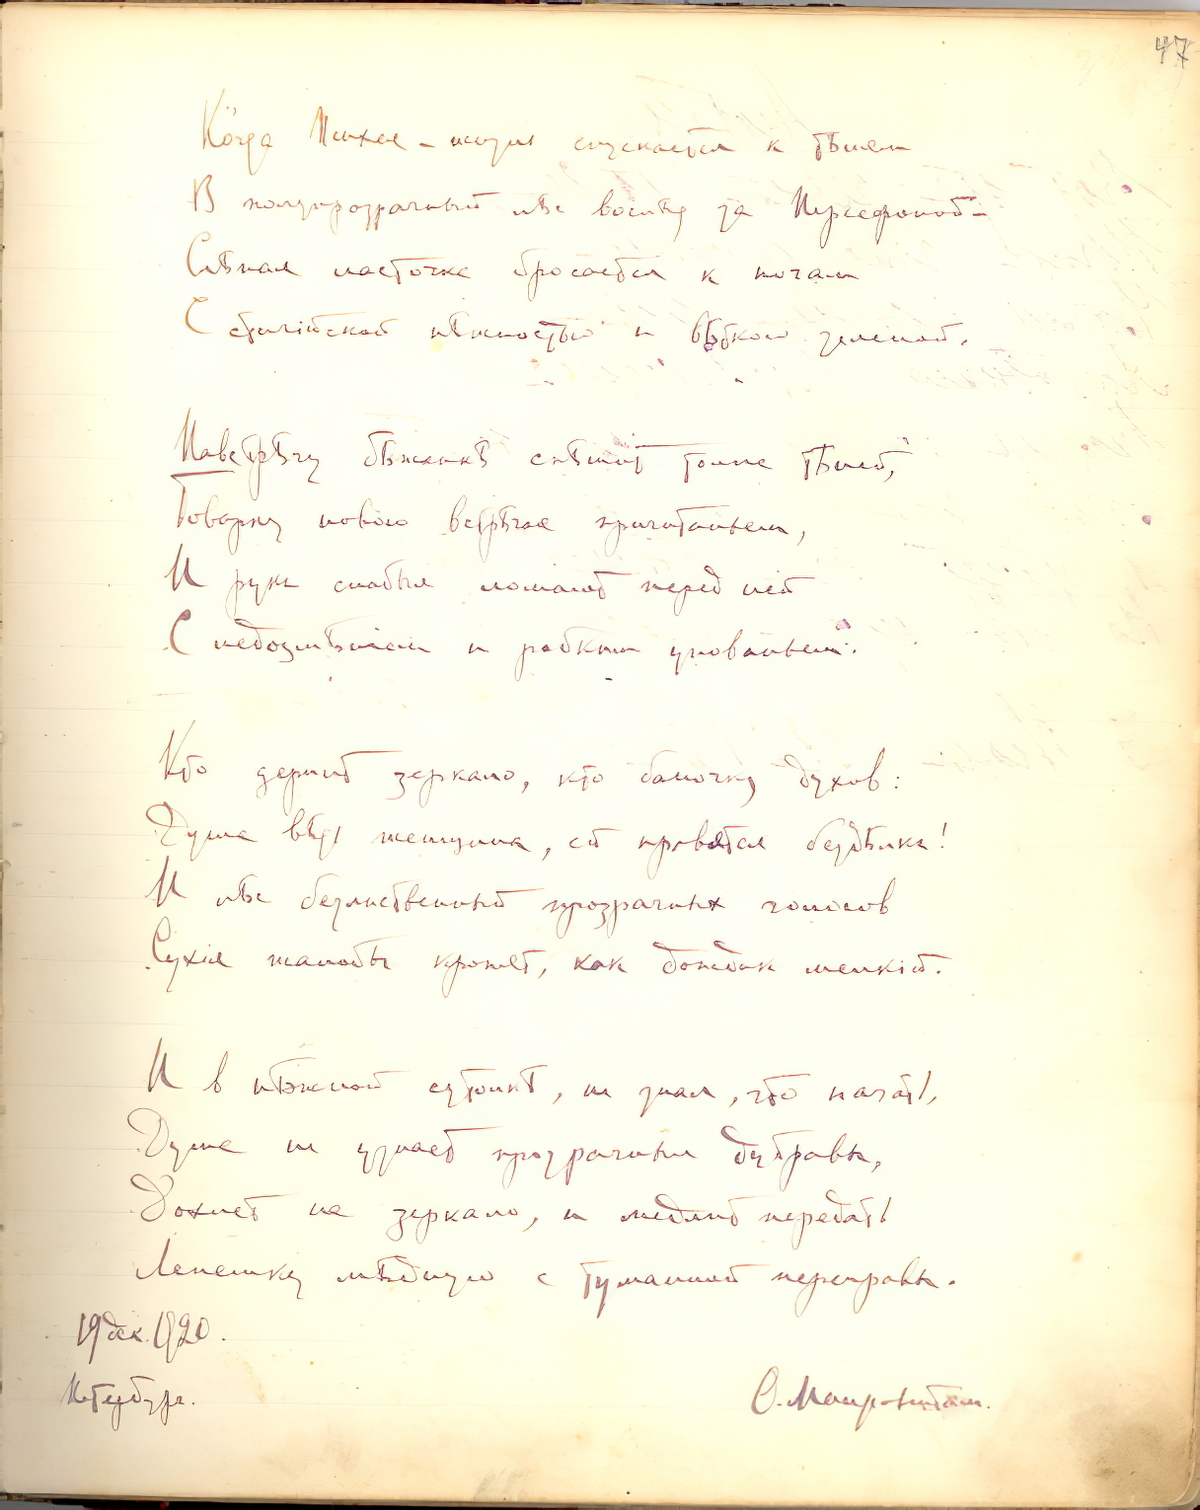 47
Когда Психея-жизнь спускается к тѣням
В полупрозрачный лѣс вослѣд за Персефоной –
Слѣпая ласточка бросается к ногам
С стигійской нѣжностью и вѣткою зеленой.
Навстрѣчу бѣженкѣ спѣшит толпа тѣней,
Товарку новую встрѣчая причитаньем,
И руки слабыя ломают перед ней
С недоумѣнием и робким упованьем.
Кто держит зеркало, кто баночку духов:
Душа вѣдь женщина, ей нравятся бездѣлки!
И лѣс безлиственный прозрачных голосов
Сухія жалобы кропят, как дождик мелкій.
И в нѣжной сутолкѣ, не зная, что начать,
Душа не узнает прозрачныя дубравы,
Дохнет на зеркало, и медлит передать
Лепешку мѣдную с туманной переправы.
19 дек. 1920.
Петербург.
О. Мандельштам.